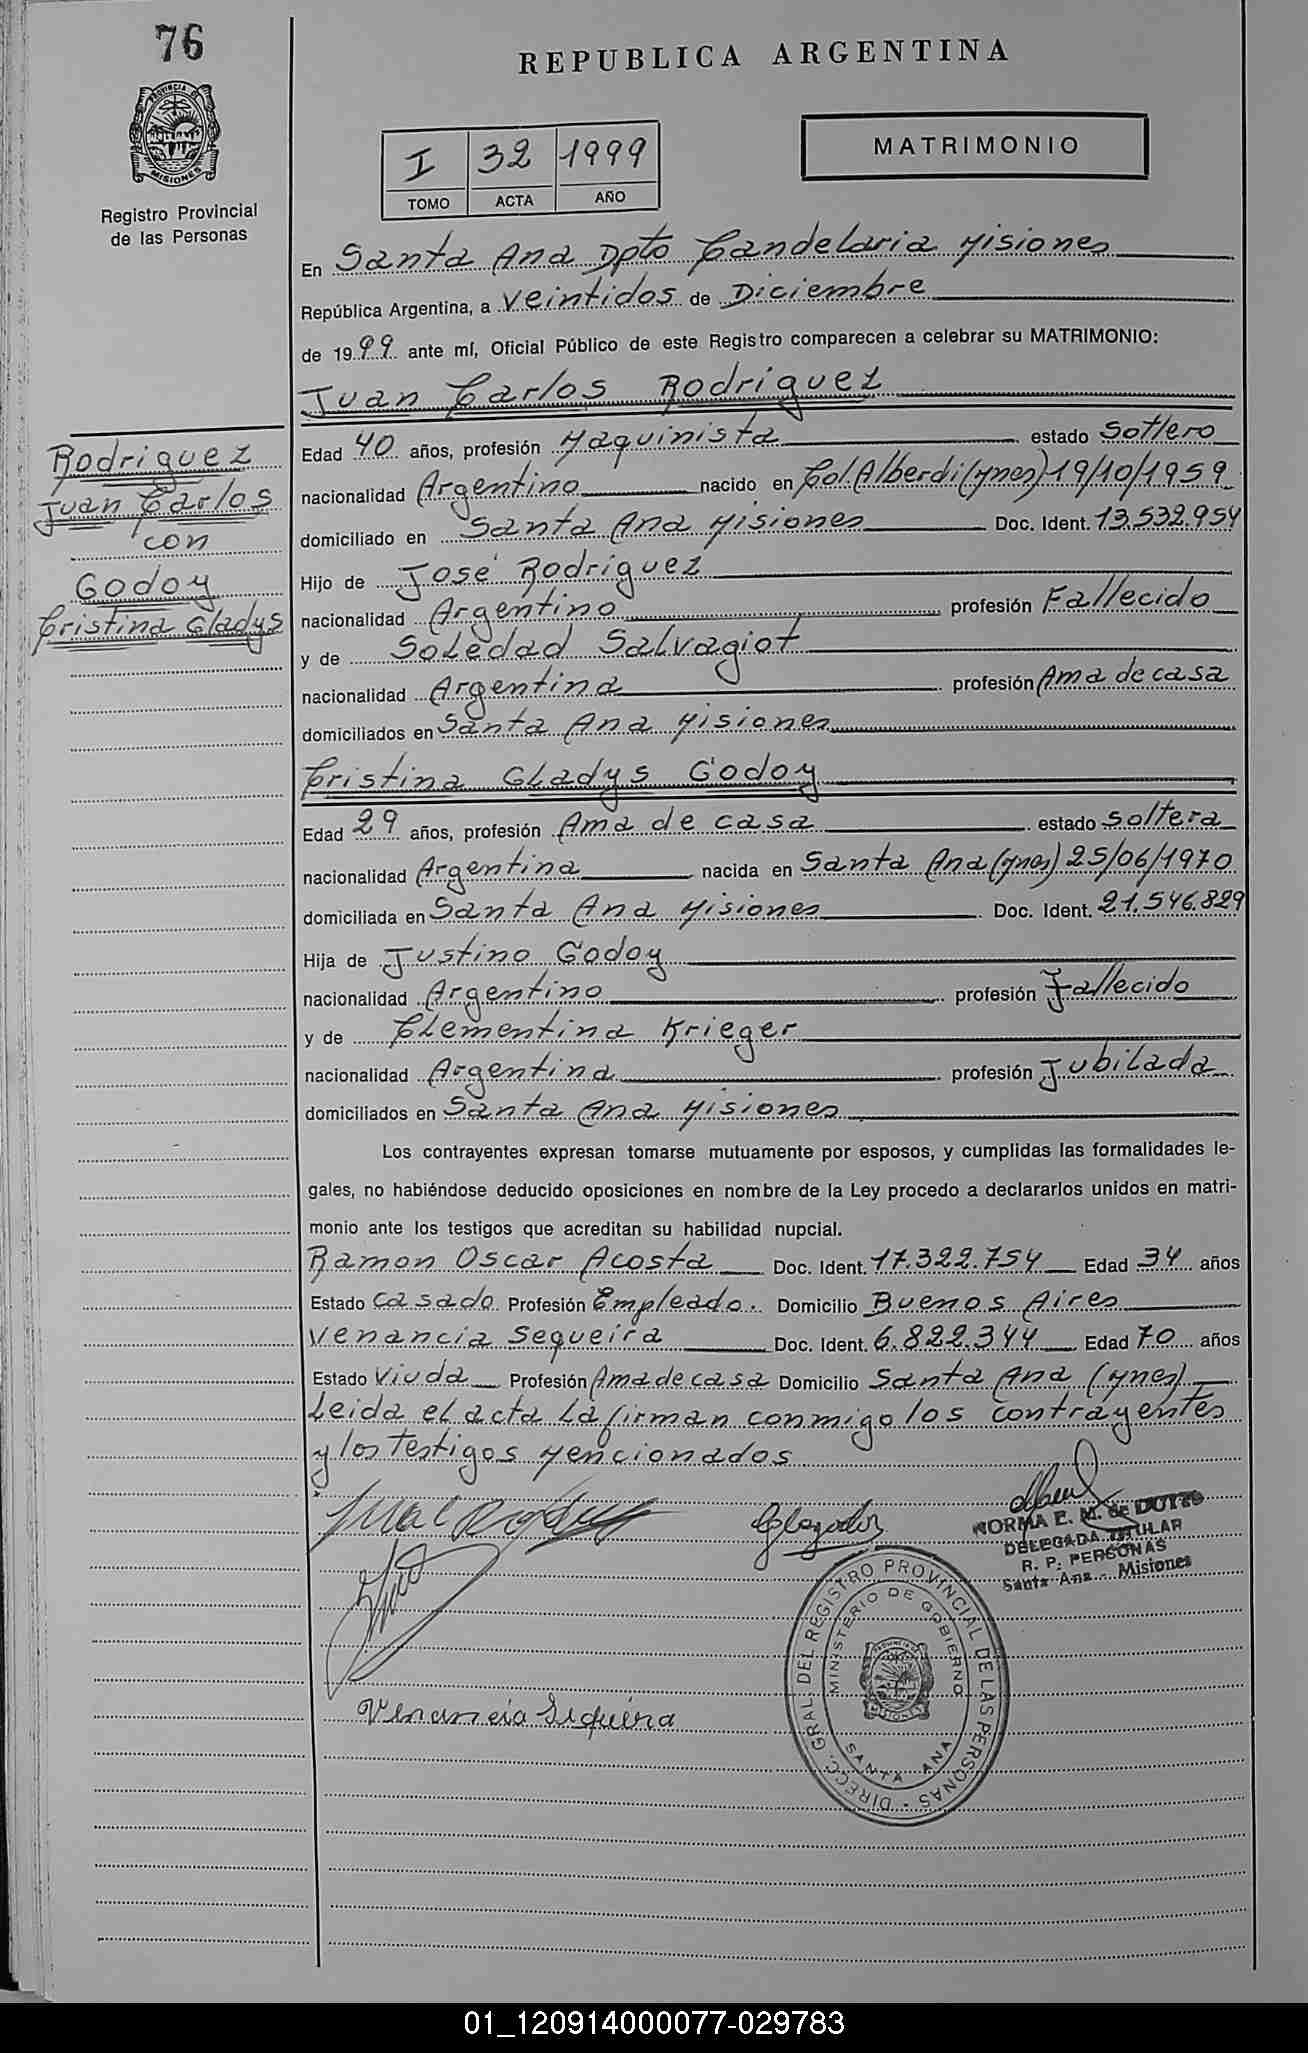 76
REPUBLICA ARGENTINA
PROVINCIA DE
MISIONES
Registro Provincial
de las Personas
I 32 1999
TOMO ACTA AÑO
MATRIMONIO
En Santa Ana Dpto Candelaria Misiones
República Argentina, a veintidos de Diciembre
de 1999 ante mí, Oficial Público de este Registro comparecen a celebrar su MATRIMONIO:
Juan Carlos Rodriguez
Rodriguez
Juan Carlos
con
Godoy
Cristina Gladys
Edad 40 años, profesión Maquinista estado Soltero
nacionalidad Argentino nacido en Col. Alberdi (Mnes) 19/10/1959
domiciliado en Santa Ana Misiones Doc. Ident. 13.532.954
Hijo de José Rodriguez
nacionalidad Argentino profesión Fallecido
y de Soledad Salvagiot
nacionalidad Argentina profesión Ama de casa
domiciliados en Santa Ana Misiones
Cristina Gladys Godoy
Edad 29 años, profesión Ama de casa estado soltera
nacionalidad Argentina nacida en Santa Ana (Mnes) 25/06/1970
domiciliada en Santa Ana Misiones Doc. Ident. 21.546.829
Hija de Justino Godoy
nacionalidad Argentino profesión Fallecido
y de Clementina Krieger
nacionalidad Argentina profesión Jubilada
domiciliados en Santa Ana Misiones
Los contrayentes expresan tomarse mutuamente por esposos, y cumplidas las formalidades le-
gales, no habiéndose deducido oposiciones en nombre de la Ley procedo a declararlos unidos en matri-
monio ante los testigos que acreditan su habilidad nupcial.
Ramon Oscar Acosta Doc. Ident. 17.322.754 Edad 34 años
Estado Casado Profesión Empleado. Domicilio Buenos Aires
Venancia Sequeira Doc. Ident. 6.822.344 Edad 70 años
Estado Viuda Profesión Ama de casa Domicilio Santa Ana (Mnes)
Leida el acta la firman conmigo los contrayentes
y los Testigos Mencionados
NORMA E. M. de DUTTO
DELEGADA TITULAR
R. P. PERSONAS
Santa Ana - Misiones
DIRECC. GRAL. DEL REGISTRO PROVINCIAL DE LAS PERSONAS -
MINISTERIO DE GOBIERNO
MISIONES
SANTA ANA
Venancia Siqueira
01_120914000077-029783